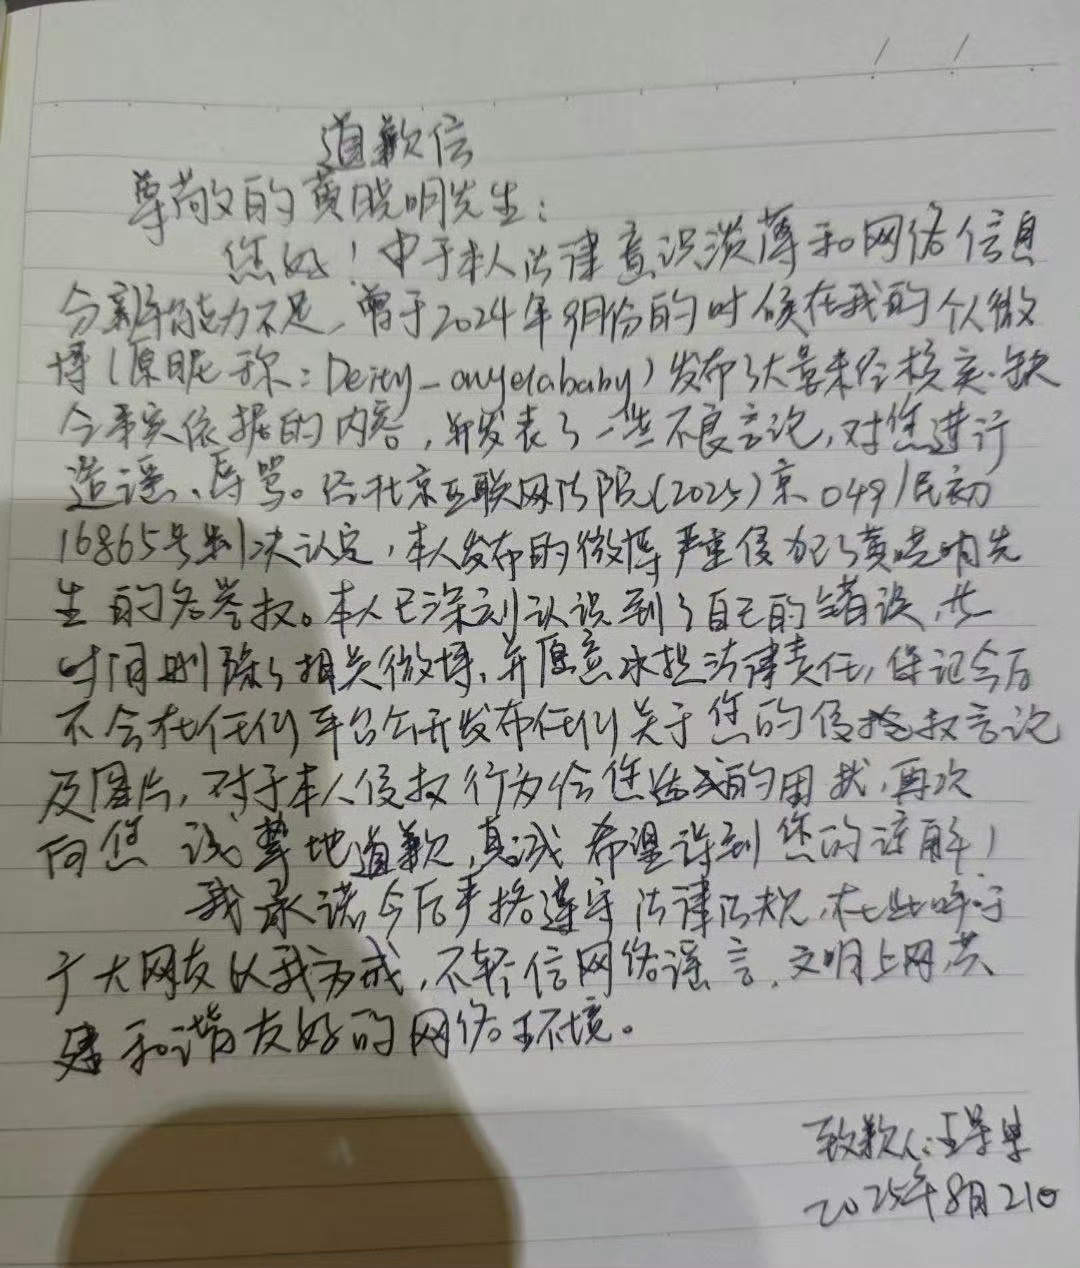 道歉信
尊敬的黄晓明先生：
您好！由于本人法律意识淡薄和网络信息
分辨能力不足，曾于2024年9月份的时候在我的个人微
博（原昵称：Deity-anyelababy）发布了大量未经核实、缺
令事实依据的内容，并发表了一些不良言论，对您进行
造谣、辱骂。经北京互联网法院（2025）京0491民初
16865号判决认定，本人发布的微博严重侵犯了黄晓明先
生的名誉权。本人已深刻认识到了自己的错误，此
时间删除了相关微博，并愿意承担法律责任，保证今后
不会在任何平台公开发布任何关于您的侵权言论
及图片，对于本人侵权行为给您造成的困扰，再次
向您诚挚地道歉，真诚希望得到您的谅解！
我承诺今后严格遵守法律法规，在此呼吁
广大网友以我为戒，不轻信网络谣言，文明上网，共
建和谐友好的网络环境。
致歉人：王
2025年8月21日